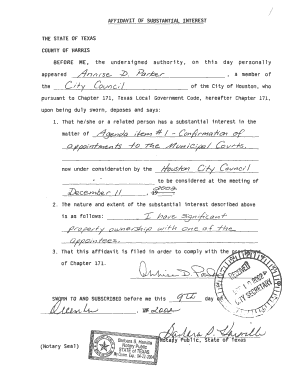 AFFIDAVIT OF SUBSTANTIAL INTEREST
THE STATE OF TEXAS
COUNTY OF HARRIS
BEFORE ME, the undersigned authority, on this day personally
appeared Annise D. Parker, a member of
the City Council of the City of Houston, who
pursuant to Chapter 171, Texas Local Government Code, hereafter Chapter 171,
upon being duly sworn, deposes and says:
1. That he/she or a related person has a substantial interest in the
matter of Agenda item #1 - Confirmation of
appointments to the Municipal Courts.
now under consideration by the Houston City Council
to be considered at the meeting of
December 11, 2002
2. The nature and extent of the substantial interest described above
is as follows: I have significant
property ownership with one of the
appointees.
3. That this affidavit is filed in order to comply with the
of Chapter 171.
Annise D. Parker
RECEIVED
CITY SECRETARY
SWORN TO AND SUBSCRIBED before me this 9th day of
December, 2002
Barbara D. Harwell
Notary Public
STATE OF TEXAS
(Notary Seal)
Notary Public, State of Texas